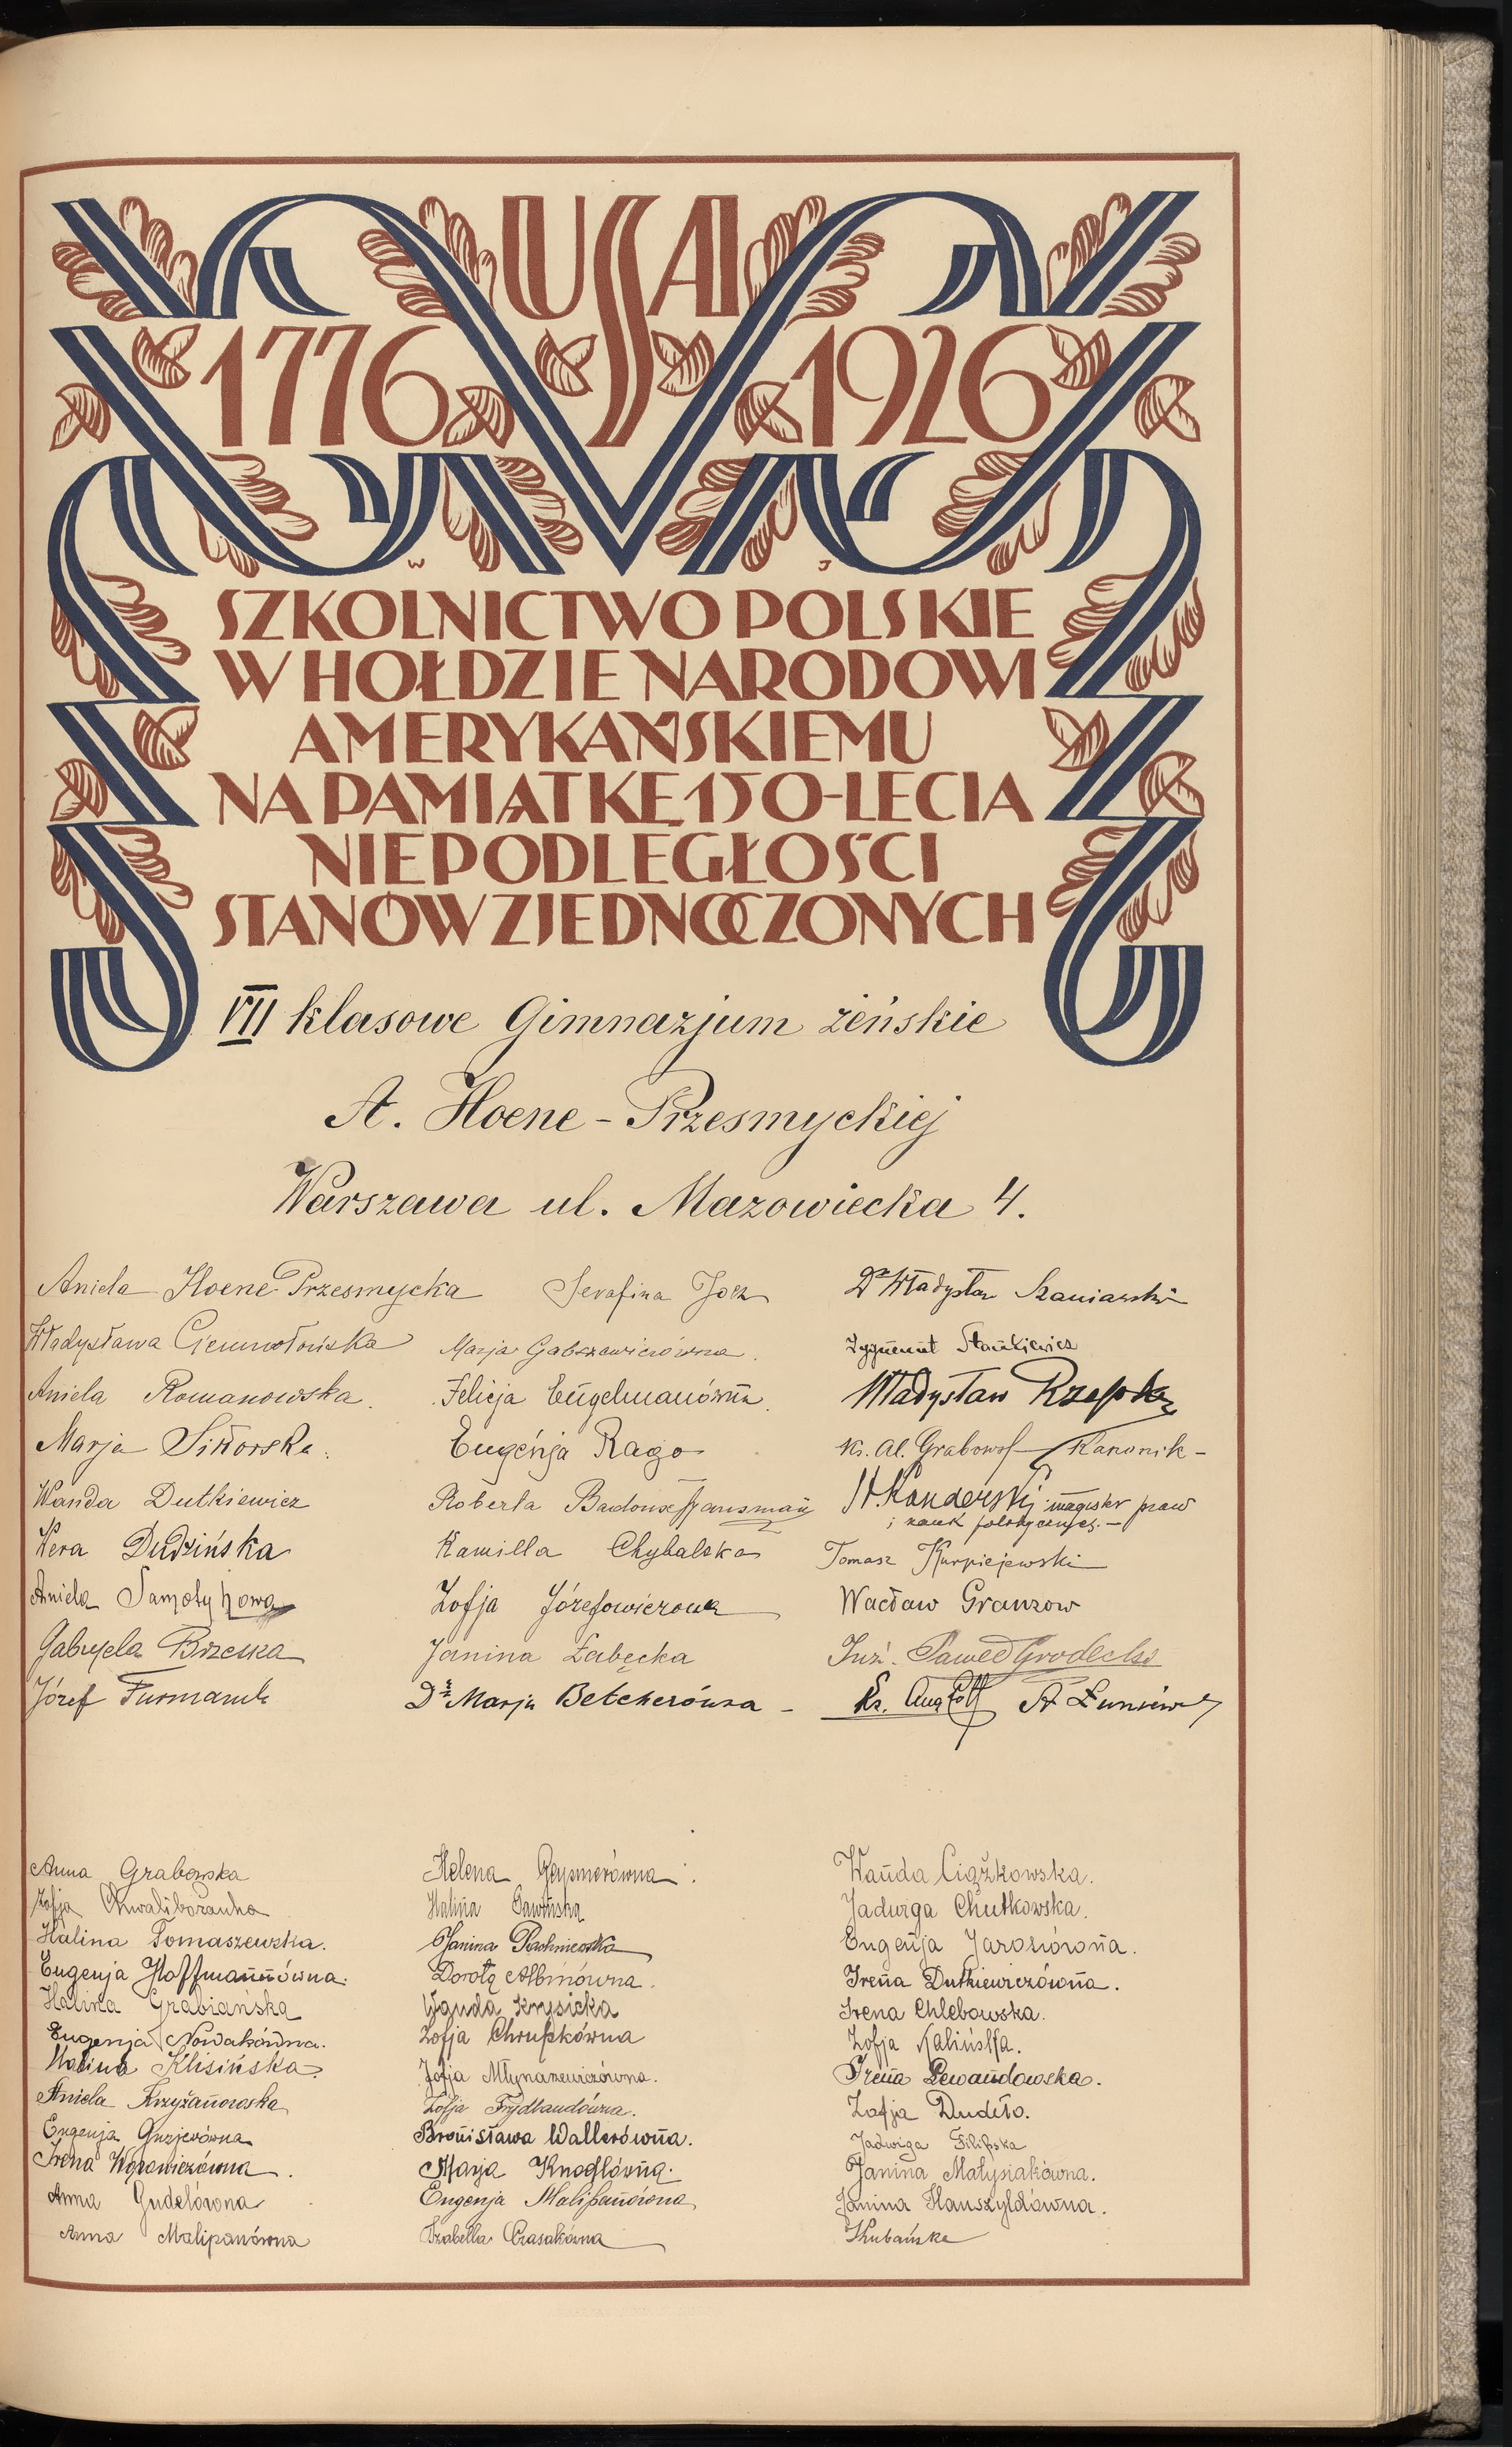 USA
1776 1926
W J
SZKOLNICTWO POLSKIE
W HOŁDZIE NARODOWI
AMERYKAŃSKIEMU
NA PAMIĄTKĘ 150-LECIA
NIEPODLEGŁOŚCI
STANÓW ZJEDNOCZONYCH
VII klasowe Gimnazjum żeńskie
A. Hoene-Przesmyckiej
Warszawa ul. Mazowiecka 4.
Aniela Hoene Przesmycka
Władysława Ciemnołońska
Aniela Romanowska.
Marja Sikorska.
Wanda Dutkiewicz
Wera Dudzińska
Aniela
Gabryela Brzeska
Józef Furmanik
Serafina Jocz
Marja Gabszewiczówna.
Felicja Engelmanówna.
Eugenja Rago
Roberta
Kamilla Chybalska
Zofja Józefowiczowa
Janina Łabęcka
Dr Marja Betcherówna -
Dr Władysław Szaniawski
Zygmunt Stankiewicz
Władysław Rzepka
Ks. Al. Grabowski Kanonik -
St. Kanderski magister praw
i nauk politycznych. -
Tomasz Kurpiejewski
Wacław Granzow
Inż. Paweł Grodecki
Ks. Aug
Anna Grabowska
Zofja Chwalibożanka
Halina Tomaszewska.
Eugenja Hoffmannówna.
Halina Grabiańska
Eugenja Nowakówna.
Halina Klisińska
Aniela Krzyżanowska
Eugenja
Irena
Anna Gudelówna
Anna Malipanówna
Helena Geysmerówna.
Halina Sawińska
Janina Pachniewska
Dorota Albinówna.
Wanda Krysicka
Zofja Chrupkówna
Zofja Młynarzewiczówna.
Zofja Frydlandówna.
Bronisława Wallerówna.
Marja Knoflówna.
Eugenja Malipanówna
Izabella Czasakówna
Wanda Ciążkowska.
Jadwiga Chutkowska.
Eugenja Jaroszówna.
Irena Dutkiewiczówna.
Irena Chlebowska.
Zofja Kalińska.
Irena Lewandowska.
Zofja Dudeło.
Jadwiga Filipska
Janina Małysiakówna.
Janina Hauszyldówna.